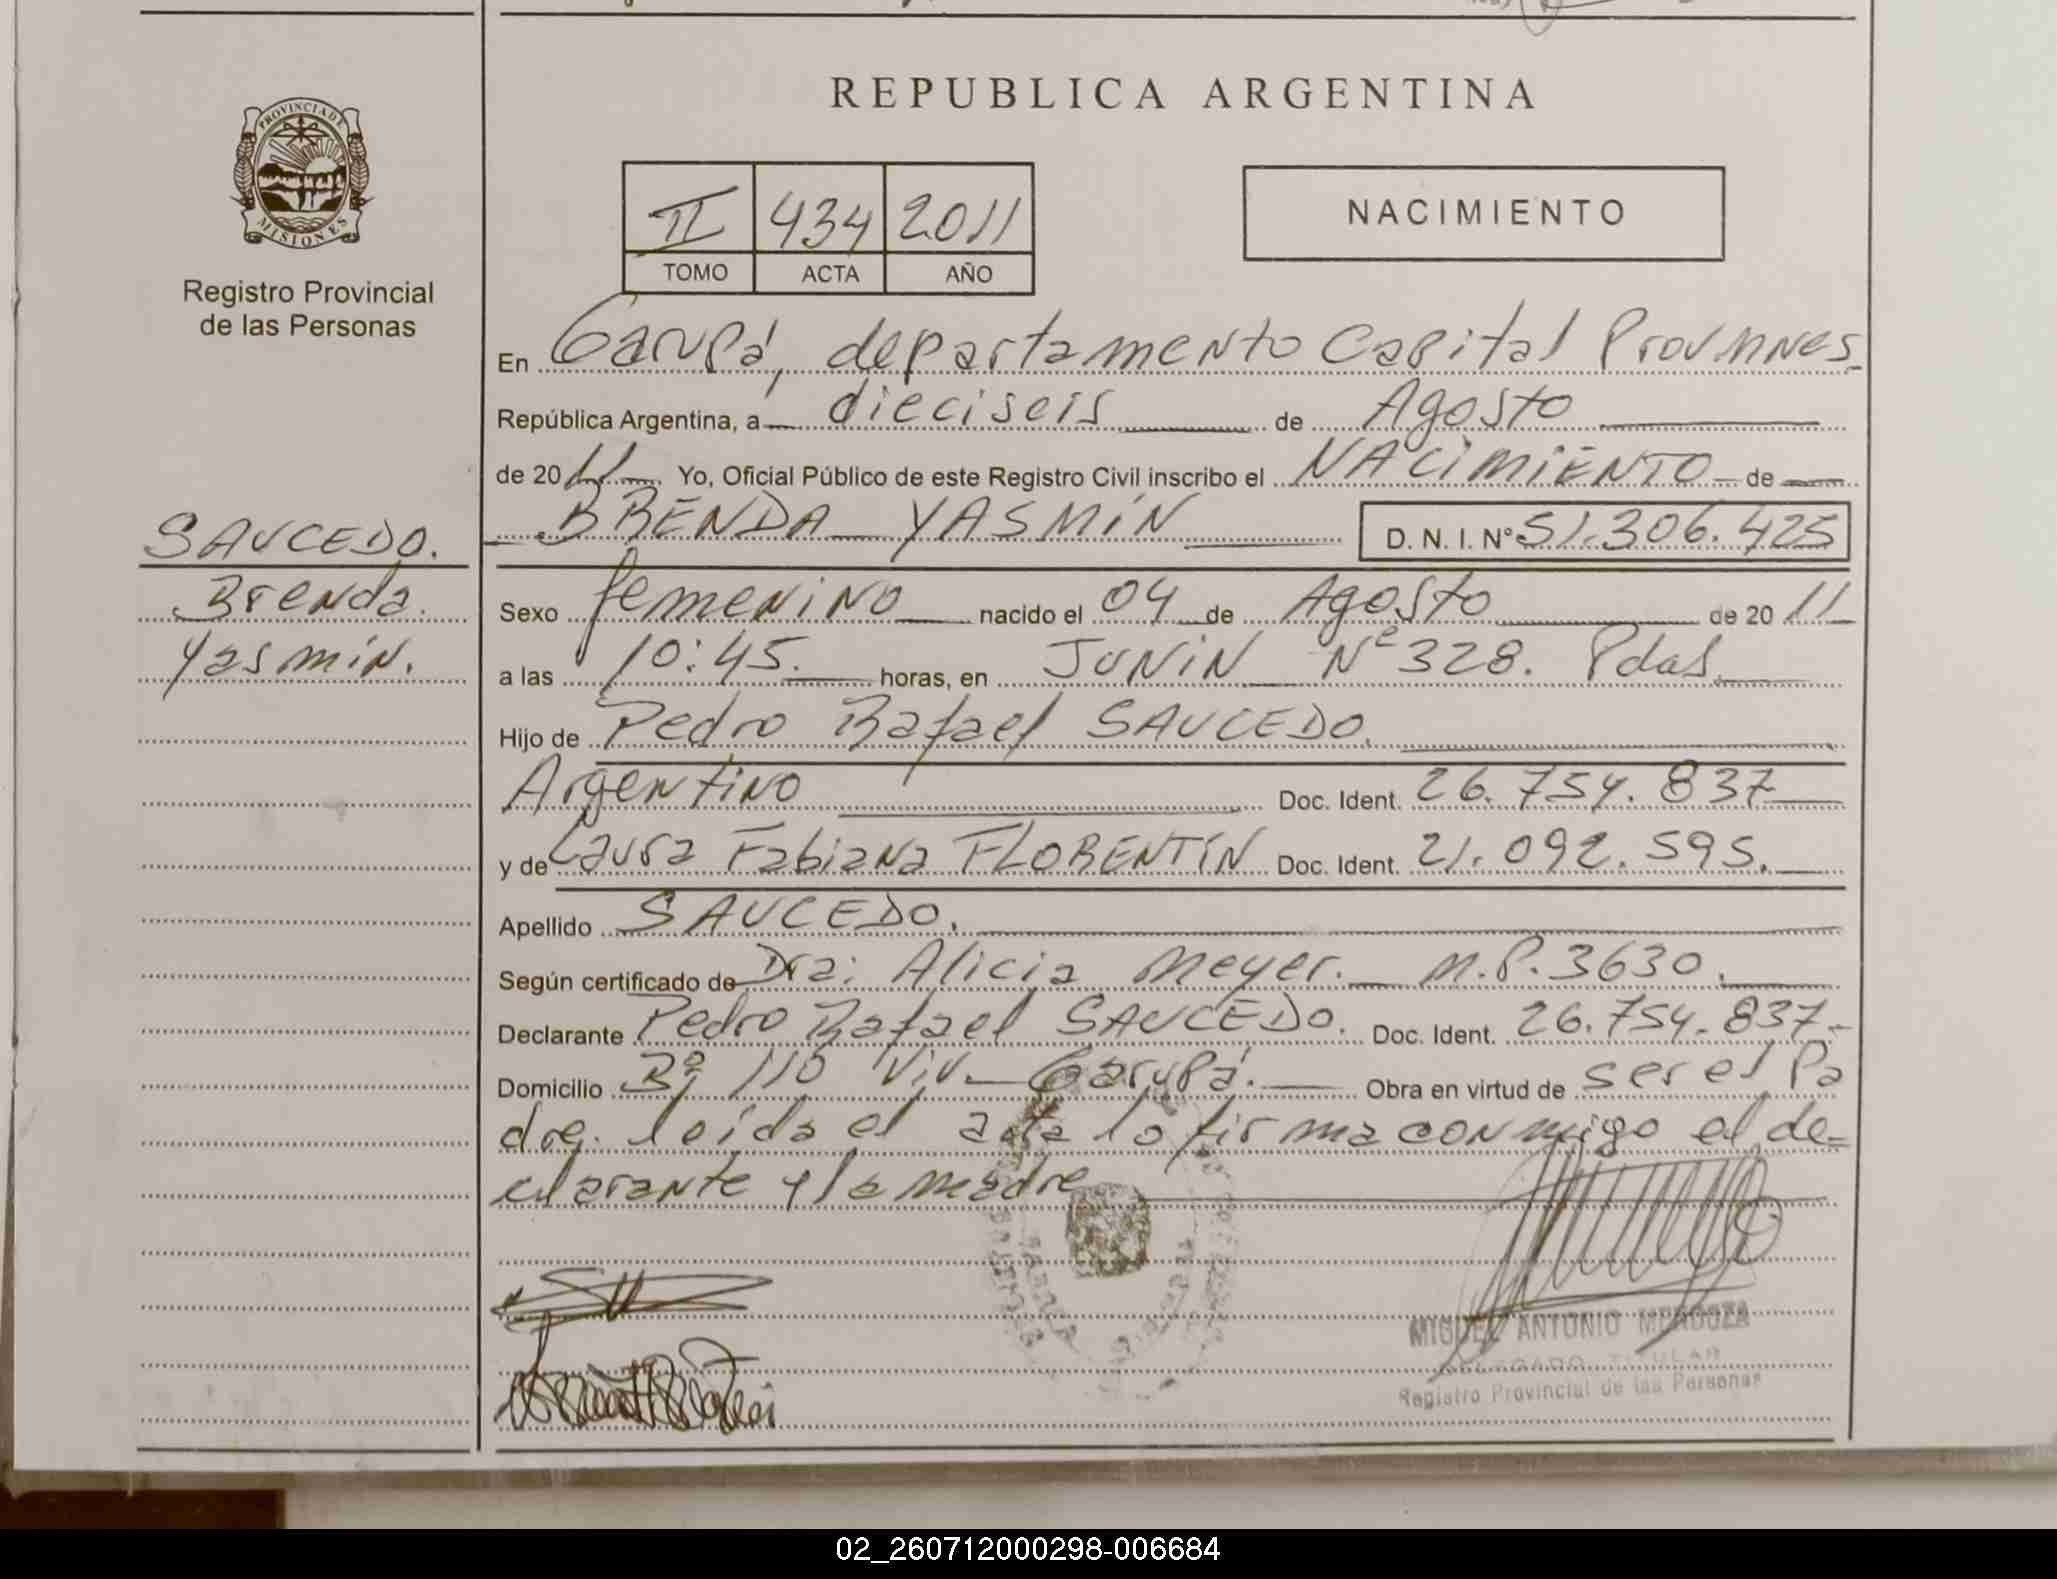 REPUBLICA ARGENTINA
PROVINCIA DE
MISIONES
Registro Provincial
de las Personas
II 434 2011
TOMO ACTA AÑO
NACIMIENTO
En Garupá, departamento Capital Prov Mnes
República Argentina, a dieciseis de Agosto
de 2011 Yo, Oficial Público de este Registro Civil inscribo el NACIMIENTO de
BRENDA YASMIN D. N. I. N° 51.306.425
SAUCEDO.
Brenda.
Yasmin.
Sexo femenino nacido el 04 de Agosto de 2011
a las 10:45. horas, en JUNIN Nº 328. Pdas.
Hijo de Pedro Rafael SAUCEDO.
Argentino Doc. Ident. 26.754.837
y de Laura Fabiana FLORENTIN Doc. Ident. 21.092.595.
Apellido SAUCEDO.
Según certificado de Dra: Alicia Meyer. M.P. 3630.
Declarante Pedro Rafael SAUCEDO. Doc. Ident. 26.754.837-
Domicilio Bº 110 Viv. Garupá. Obra en virtud de ser el Pa
dre. leida el acta lo firma conmigo el de=
clarante y la madre
MIGUEL ANTONIO MENDOZA
DELEGADO TITULAR
Registro Provincial de las Personas
02_260712000298-006684